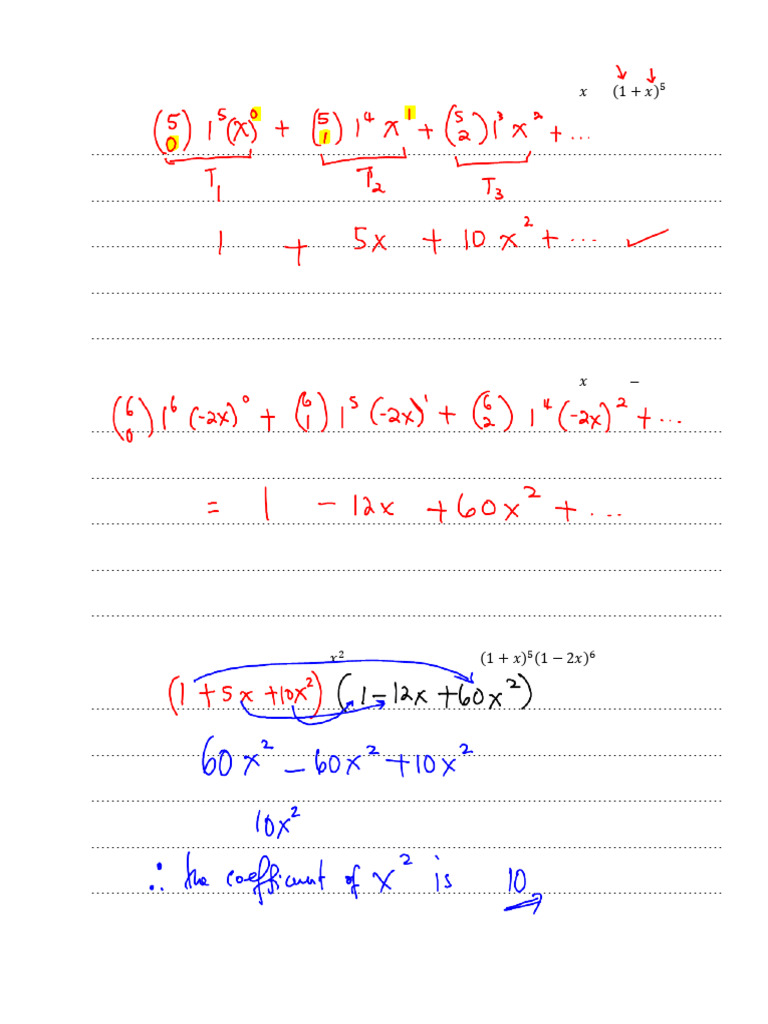 x (1 + x)⁵
(5 0) 1⁵ (x)⁰ + (5 1) 1⁴ x¹ + (5 2) 1³ x² + ...
T₁ T₂ T₃
1 + 5x + 10x² + ... ✓
x −
(6 0) 1⁶ (-2x)⁰ + (6 1) 1⁵ (-2x)¹ + (6 2) 1⁴ (-2x)² + ...
= 1 − 12x + 60x² + ...
x² (1 + x)⁵(1 − 2x)⁶
(1 + 5x + 10x²) (1 − 12x + 60x²)
60x² − 60x² + 10x²
10x²
∴ the coefficient of x² is 10